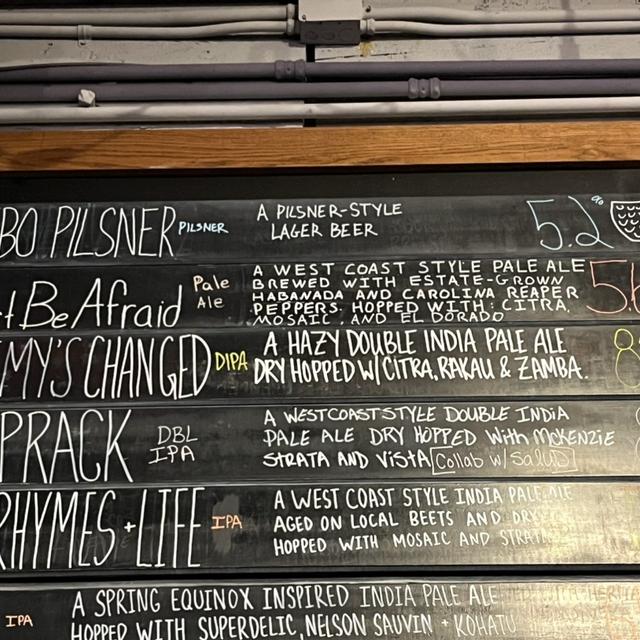 BO PILSNER PILSNER A PILSNER-STYLE
LAGER BEER 5.2%
t Be Afraid Pale
Ale A WEST COAST STYLE PALE ALE
BREWED WITH ESTATE-GROWN
HABANADA AND CAROLINA REAPER
PEPPERS. HOPPED WITH: CITRA,
MOSAIC, AND EL DORADO
MY'S CHANGED DIPA A HAZY DOUBLE INDIA PALE ALE
DRY HOPPED W/ CITRA, RAKAU & ZAMBA. 8
PRACK DBL
IPA A WEST COAST STYLE DOUBLE INDIA
PALE ALE DRY HOPPED With McKENZIE
STRATA AND VISTA Collab w/ SALUD
RHYMES + LIFE IPA A WEST COAST STYLE INDIA PALE ALE
AGED ON LOCAL BEETS AND DRY
HOPPED WITH MOSAIC AND STRATA
IPA A SPRING EQUINOX INSPIRED INDIA PALE ALE
HOPPED WITH SUPERDELIC, NELSON SAUVIN + KOHATU